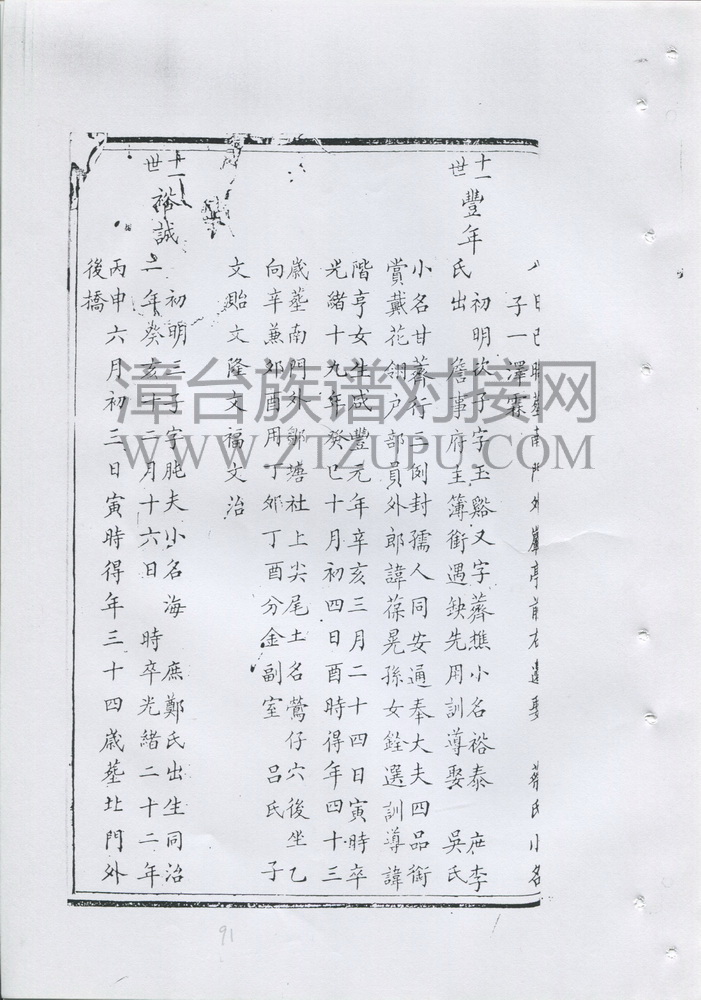 日巳時葬南門外 亭前右邊娶 蔡氏小名
子一澤霖
十一世 豐年
初明次子字玉谿又字薺樵小名裕泰 庶李
氏出 詹事府主簿銜遇缺先用訓導娶 吳氏
小名甘薺行三例封孺人同安通奉大夫四品銜
賞戴花翎户部員外郎諱葆晃孫女銓選訓導諱
階亨女生咸豐元年辛亥三月二十四日寅時卒
光緒十九年癸巳十月初四日酉時得年四十三
歲葬南門外鄒塘社上尖尾土名鶯仔穴後坐乙
向辛兼卯酉用丁卯丁酉分金副室 吕氏 子
文貽文隆文福文治
十一世 裕誠
初明三子字肫夫小名海 庶鄭氏出生同治
二年癸亥十二月十六日 時卒光緒二十二年
丙申六月初三日寅時得年三十四歲葬北門外
後橋
漳台族谱对接网
WWW.ZTZUPU.COM
91